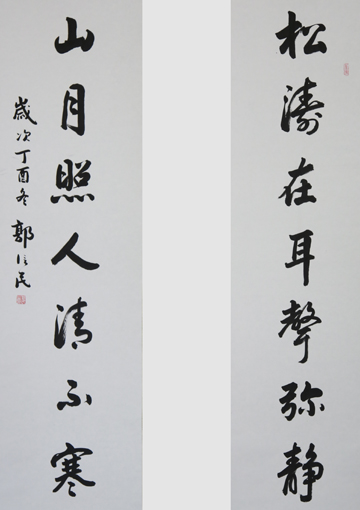 松濤在耳聲弥静
山月照人清不寒
歲次丁酉冬 郭信民